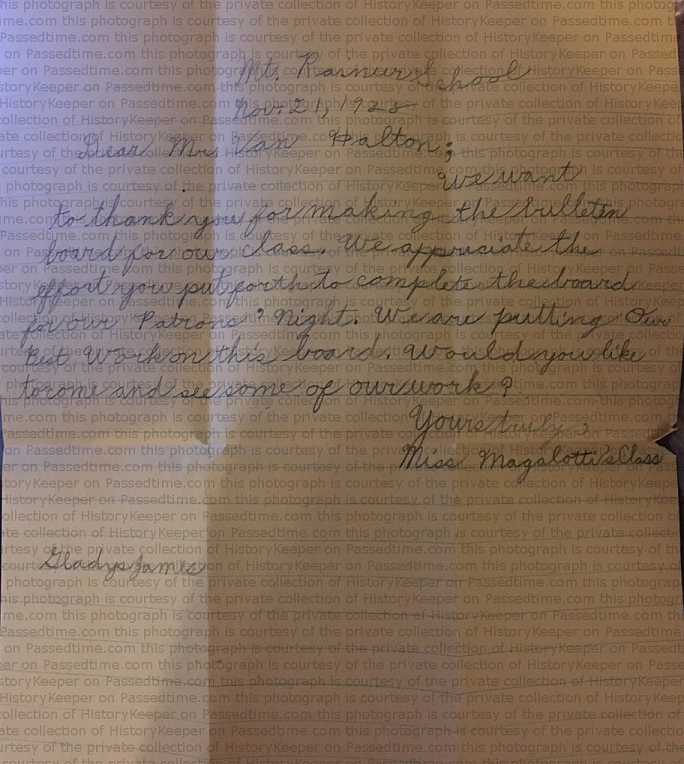 Mt. Rainier School
Nov. 21, 1928
Dear Mr. Van Halton;
We want
to thank you for making the bulletin
board for our class. We appreciate the
effort you put forth to complete the board
for our Patrons' Night. We are putting Our
best work on this board. Would you like
to come and see some of our work?
Yours truly,
Miss Magalotti's Class
Gladys James
this photograph is courtesy of the private collection of HistoryKeeper on Passedtime.com